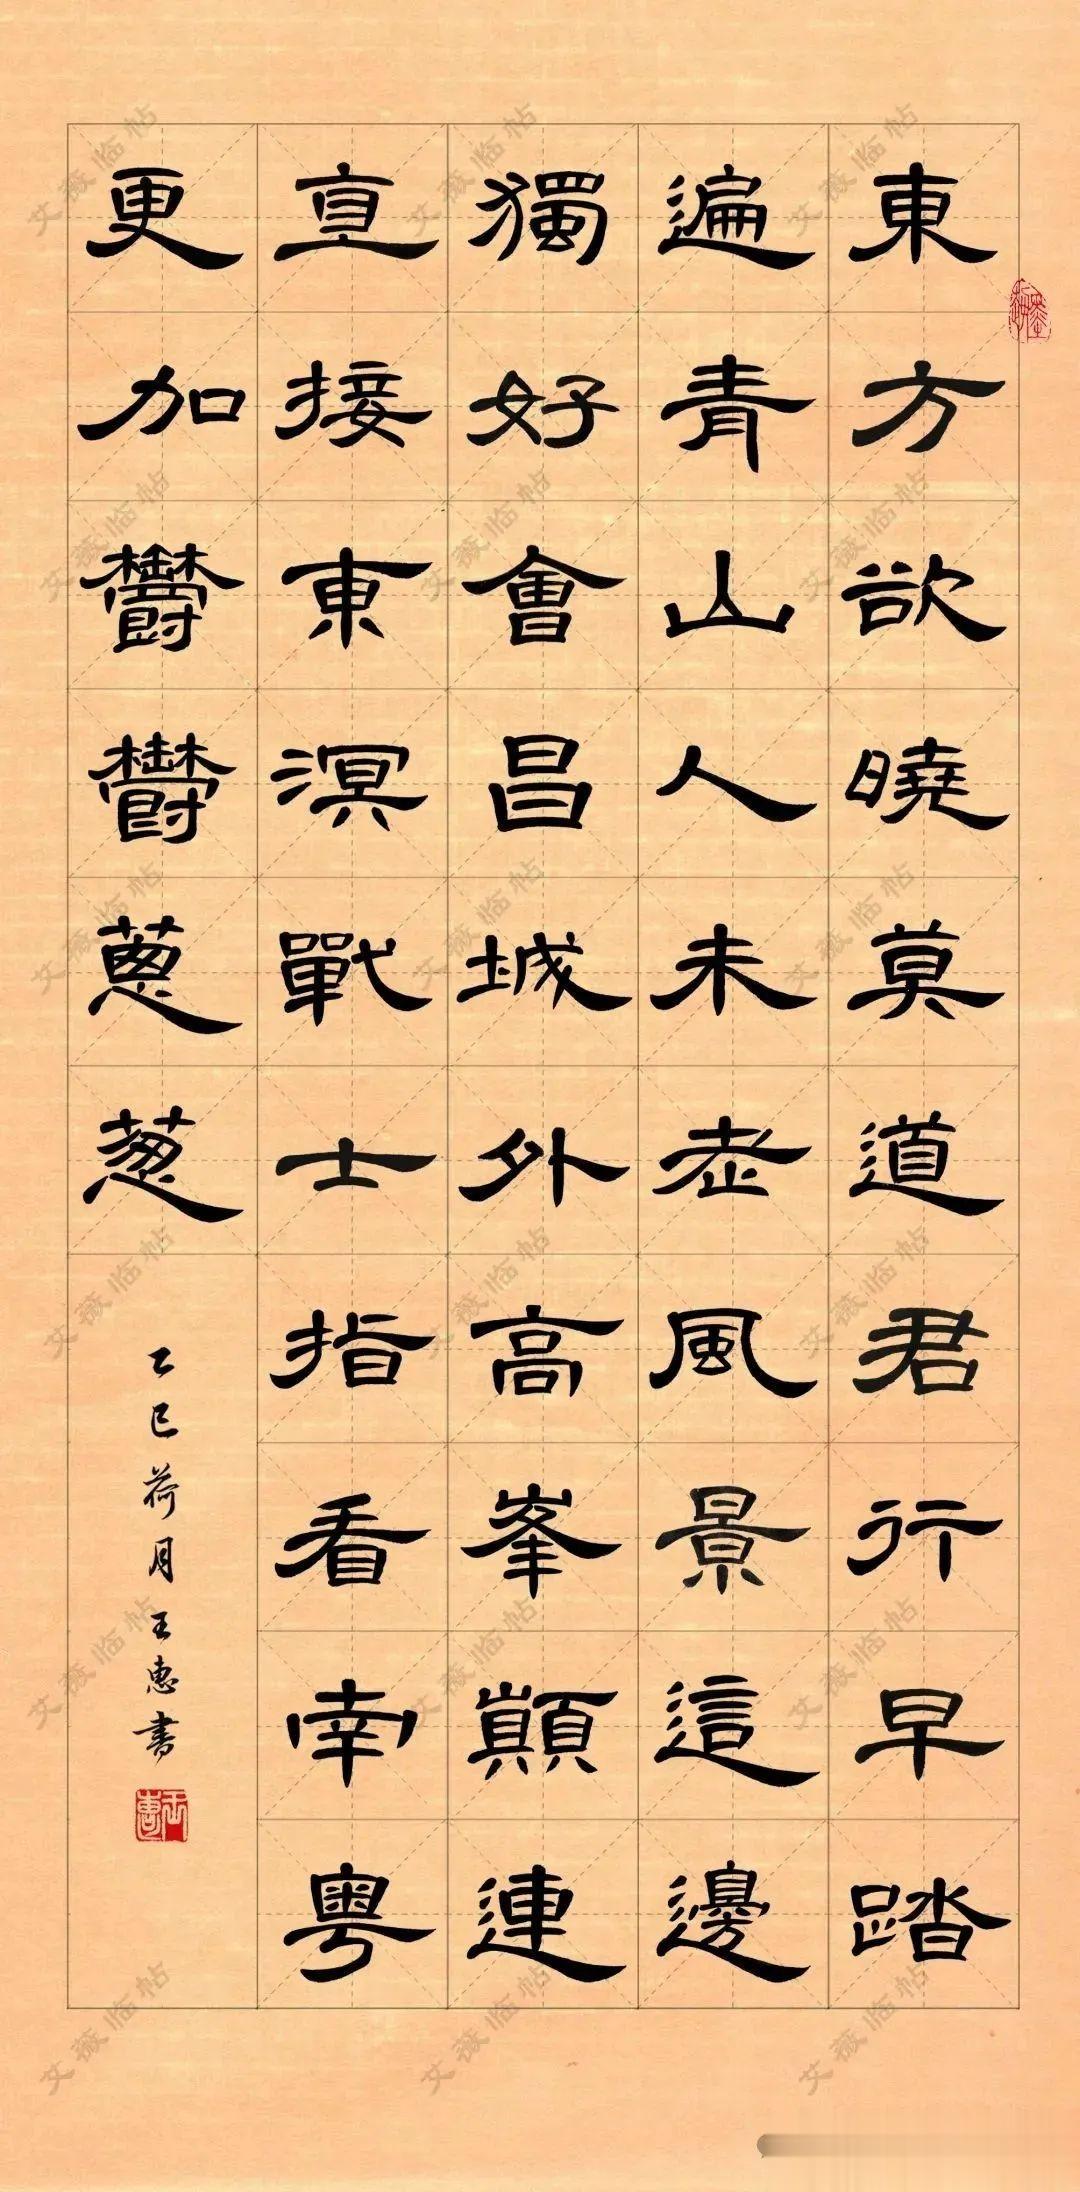 東方欲曉莫道君行早踏
遍青山人未老風景這邊
獨好會昌城外高峯顛連
直接東溟戰士指看南粵
更加鬱鬱蔥葱
乙巳荷月王惠書
王惠
艾薇临帖